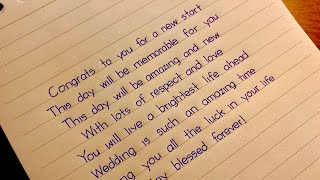 Congrats to you for a new start
This day will be memorable for you
This day will be amazing and new
With lots of respect and love
You will live a brightest life ahead
Wedding is such an amazing time
you all the luck in your life
blessed forever!